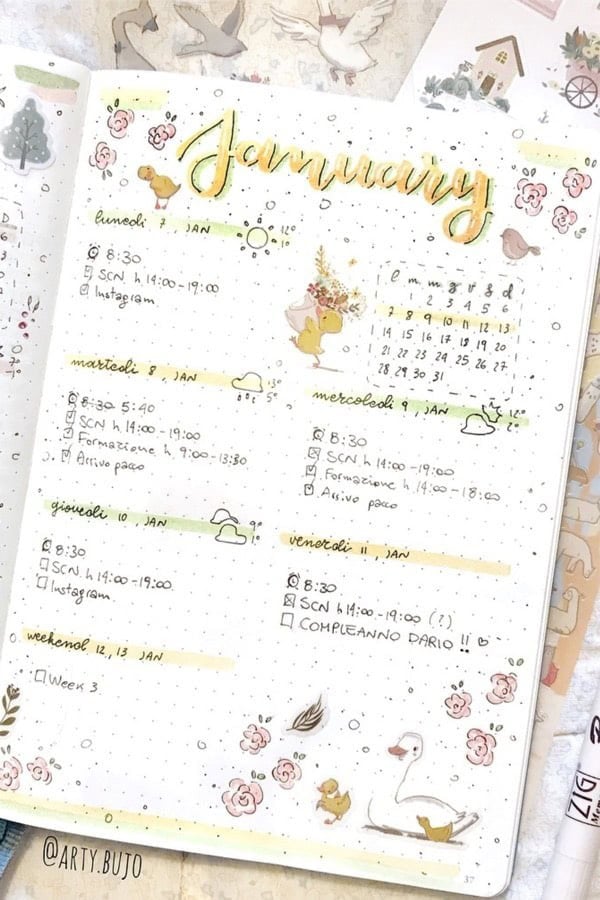 January
lunedì 7, JAN
12°
1°
8:30
SCN h 14:00-19:00
Instagram
l m m g v s d
1 2 3 4 5 6
7 8 9 10 11 12 13
14 15 16 17 18 19 20
21 22 23 24 25 26 27
28 29 30 31
martedì 8, JAN
13°
5°
8:30 5:40
SCN h 14:00-19:00
Formazione h 9:00-13:30
Arrivo pacco
mercoledì 9, JAN
12°
2°
8:30
SCN h 14:00-19:00
Formazione h 14:00-18:00
Arrivo pacco
giovedì 10, JAN
9°
1°
8:30
SCN h 14:00-19:00
Instagram
venerdì 11, JAN
8:30
SCN h 14:00-19:00 (?)
COMPLEANNO DARIO !!
weekend 12, 13 JAN
Week 3
37
@ARTY.BUJO
ZIG